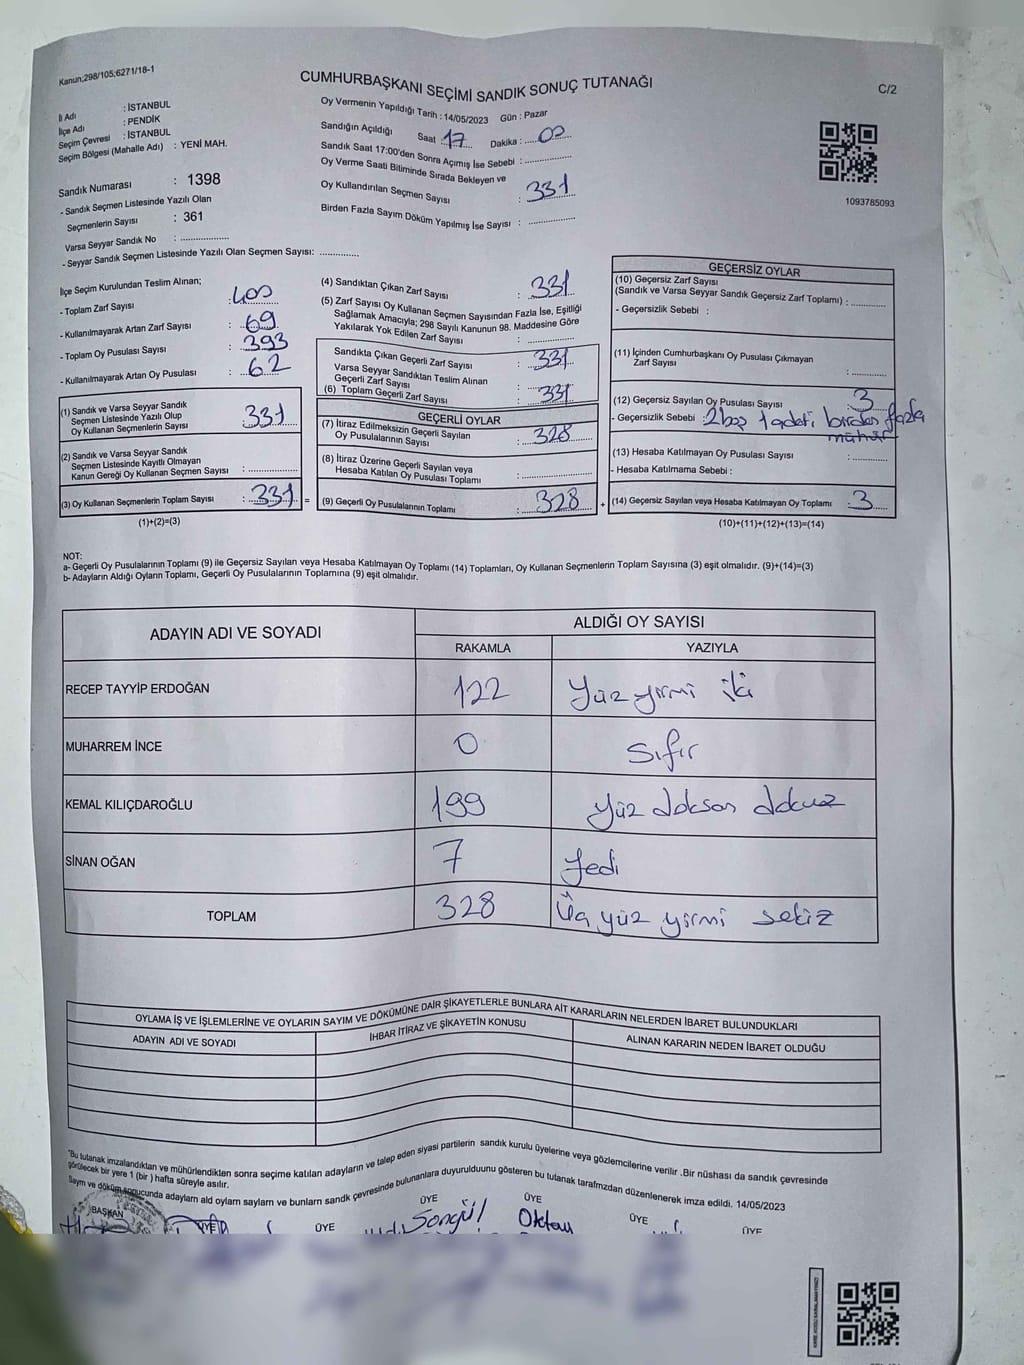 Kanun;298/105;6271/18-1
CUMHURBAŞKANI SEÇİMİ SANDIK SONUÇ TUTANAĞI
C/2
İl Adı : İSTANBUL
İlçe Adı : PENDİK
Seçim Çevresi : İSTANBUL
Seçim Bölgesi (Mahalle Adı) : YENİ MAH.
Sandık Numarası : 1398
- Sandık Seçmen Listesinde Yazılı Olan
Seçmenlerin Sayısı : 361
Varsa Seyyar Sandık No : ....................
- Seyyar Sandık Seçmen Listesinde Yazılı Olan Seçmen Sayısı: ................
Oy Vermenin Yapıldığı Tarih : 14/05/2023 Gün : Pazar
Sandığın Açıldığı Saat 17 Dakika : 00
Sandık Saat 17:00'den Sonra Açımış İse Sebebi : ....................
Oy Verme Saati Bitiminde Sırada Bekleyen ve
Oy Kullandırılan Seçmen Sayısı : 331
Birden Fazla Sayım Döküm Yapılmış İse Sayısı : ....................
1093785093
İlçe Seçim Kurulundan Teslim Alınan;
- Toplam Zarf Sayısı : 400
- Kullanılmayarak Artan Zarf Sayısı : 69
- Toplam Oy Pusulası Sayısı : 393
- Kullanılmayarak Artan Oy Pusulası : 62
(1) Sandık ve Varsa Seyyar Sandık
Seçmen Listesinde Yazılı Olup
Oy Kullanan Seçmenlerin Sayısı 331
(2) Sandık ve Varsa Seyyar Sandık
Seçmen Listesinde Kayıtlı Olmayan
Kanun Gereği Oy Kullanan Seçmen Sayısı : ................
(3) Oy Kullanan Seçmenlerin Toplam Sayısı : 331 =
(1)+(2)=(3)
(4) Sandıktan Çıkan Zarf Sayısı : 331
(5) Zarf Sayısı Oy Kullanan Seçmen Sayısından Fazla İse, Eşitliği
Sağlamak Amacıyla; 298 Sayılı Kanunun 98. Maddesine Göre
Yakılarak Yok Edilen Zarf Sayısı : ................
Sandıkta Çıkan Geçerli Zarf Sayısı : 331
Varsa Seyyar Sandıktan Teslim Alınan
Geçerli Zarf Sayısı : ................
(6) Toplam Geçerli Zarf Sayısı : 331
GEÇERLİ OYLAR
(7) İtiraz Edilmeksizin Geçerli Sayılan
Oy Pusulalarının Sayısı : 328
(8) İtiraz Üzerine Geçerli Sayılan veya
Hesaba Katılan Oy Pusulası Toplamı : ................
(9) Geçerli Oy Pusulalarının Toplamı : 328 +
GEÇERSİZ OYLAR
(10) Geçersiz Zarf Sayısı
(Sandık ve Varsa Seyyar Sandık Geçersiz Zarf Toplamı) : ............
- Geçersizlik Sebebi :
(11) İçinden Cumhurbaşkanı Oy Pusulası Çıkmayan
Zarf Sayısı : ............
(12) Geçersiz Sayılan Oy Pusulası Sayısı : 3
- Geçersizlik Sebebi : 2 boş 1 adeti birden fazla
mühür
(13) Hesaba Katılmayan Oy Pusulası Sayısı : ............
- Hesaba Katılmama Sebebi :
(14) Geçersiz Sayılan veya Hesaba Katılmayan Oy Toplamı : 3
(10)+(11)+(12)+(13)=(14)
NOT:
a- Geçerli Oy Pusulalarının Toplamı (9) ile Geçersiz Sayılan veya Hesaba Katılmayan Oy Toplamı (14) Toplamları, Oy Kullanan Seçmenlerin Toplam Sayısına (3) eşit olmalıdır. (9)+(14)=(3)
b- Adayların Aldığı Oyların Toplamı, Geçerli Oy Pusulalarının Toplamına (9) eşit olmalıdır.
ADAYIN ADI VE SOYADI ALDIĞI OY SAYISI
RAKAMLA YAZIYLA
RECEP TAYYİP ERDOĞAN 122 Yüz yirmi iki
MUHARREM İNCE 0 Sıfır
KEMAL KILIÇDAROĞLU 199 Yüz doksan dokuz
SİNAN OĞAN 7 Yedi
TOPLAM 328 Üç yüz yirmi sekiz
OYLAMA İŞ VE İŞLEMLERİNE VE OYLARIN SAYIM VE DÖKÜMÜNE DAİR ŞİKAYETLERLE BUNLARA AİT KARARLARIN NELERDEN İBARET BULUNDUKLARI
ADAYIN ADI VE SOYADI İHBAR İTİRAZ VE ŞİKAYETİN KONUSU ALINAN KARARIN NEDEN İBARET OLDUĞU
"Bu tutanak imzalandıktan ve mühürlendikten sonra seçime katılan adayların ve talep eden siyasi partilerin sandık kurulu üyelerine veya gözlemcilerine verilir .Bir nüshası da sandık çevresinde
görülecek bir yere 1 (bir ) hafta süreyle asılır.
Sayım ve döküm sonucunda adayların ald oyların sayların ve bunların sandk çevresinde bulunanlara duyurulduunu gösteren bu tutanak tarafmzdan düzenlenerek imza edildi. 14/05/2023
BAŞKAN ÜYE ÜYE ÜYE ÜYE ÜYE ÜYE
Songül Oktay